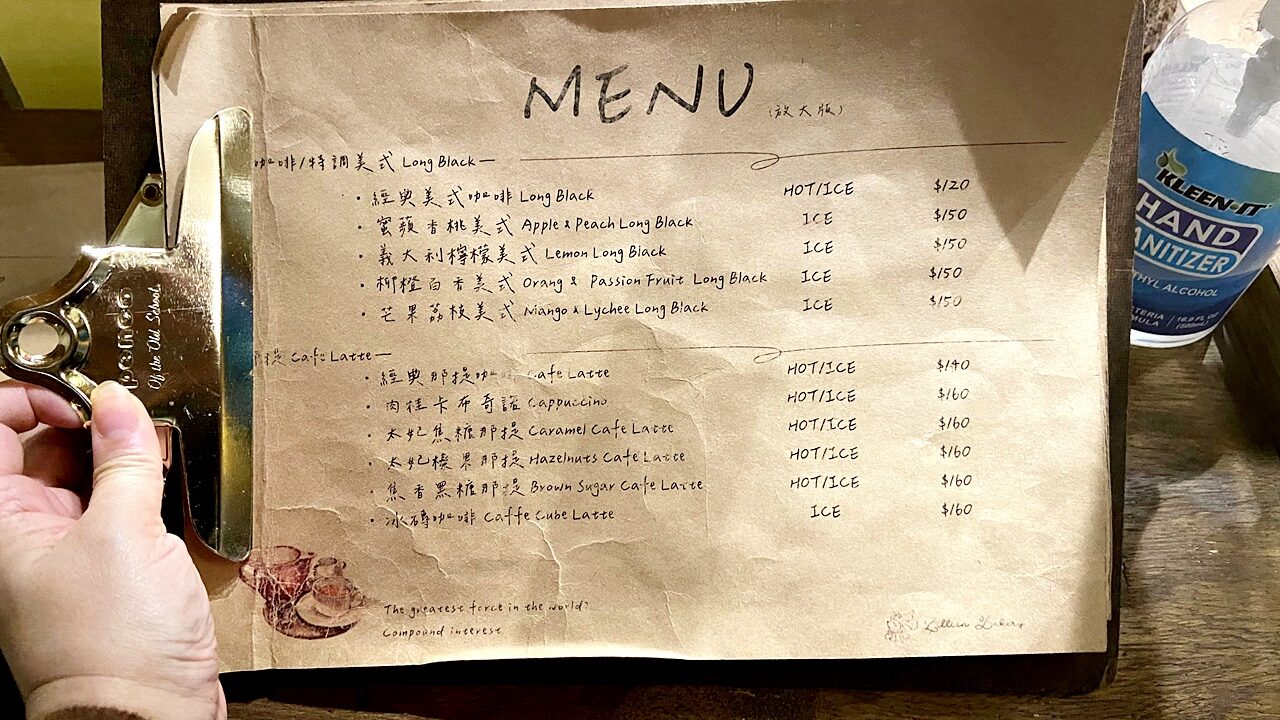 MENU (放大版)
咖啡/特調美式 Long Black
· 經典美式咖啡 Long Black HOT/ICE $120
· 蜜蘋香桃美式 Apple & Peach Long Black ICE $150
· 義大利檸檬美式 Lemon Long Black ICE $150
· 柳橙百香美式 Orang & Passion Fruit Long Black ICE $150
· 芒果荔枝美式 Mango & Lychee Long Black ICE $150
那提 Cafe Latte
· 經典那提咖 Cafe Latte HOT/ICE $140
· 肉桂卡布奇諾 Cappuccino HOT/ICE $160
· 太妃焦糖那提 Caramel Cafe Latte HOT/ICE $160
· 太妃榛果那提 Hazelnuts Cafe Latte HOT/ICE $160
· 焦香黑糖那提 Brown Sugar Cafe Latte HOT/ICE $160
· 冰磚咖啡 Caffe Cube Latte ICE $160
The greatest force in the world?
Compound interest
penco
Of the Old School.
KLEEN-IT
HAND
ANITIZER
THYL ALCOHOL
TERIA
MULA
16.9 FL OZ
(500mL)